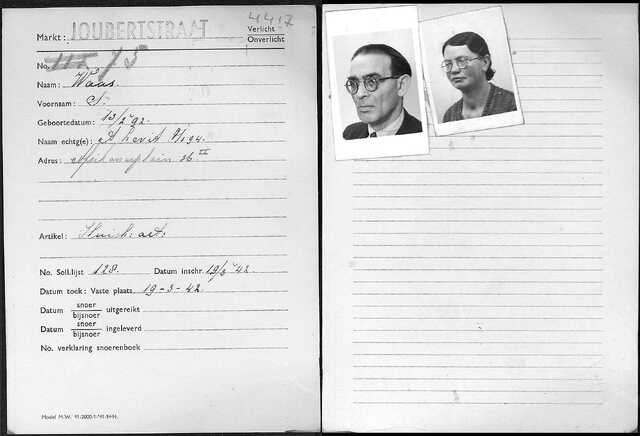 4417
Markt: JOUBERTSTRAAT Verlicht
Onverlicht
No. 115 75
Naam: Waas.
Voornaam: S.
Geboortedatum: 13/2 92.
Naam echtg(e): A Levit 9/1 94.
Adres: 16 II
Artikel: Huish: art:
No. Soll.lijst 128. Datum inschr. 19/3 '42.
Datum toek: Vaste plaats 19-3-42.
Datum snoer/bijsnoer uitgereikt
Datum snoer/bijsnoer ingeleverd
No. verklaring snoerenboek
Model M.W.